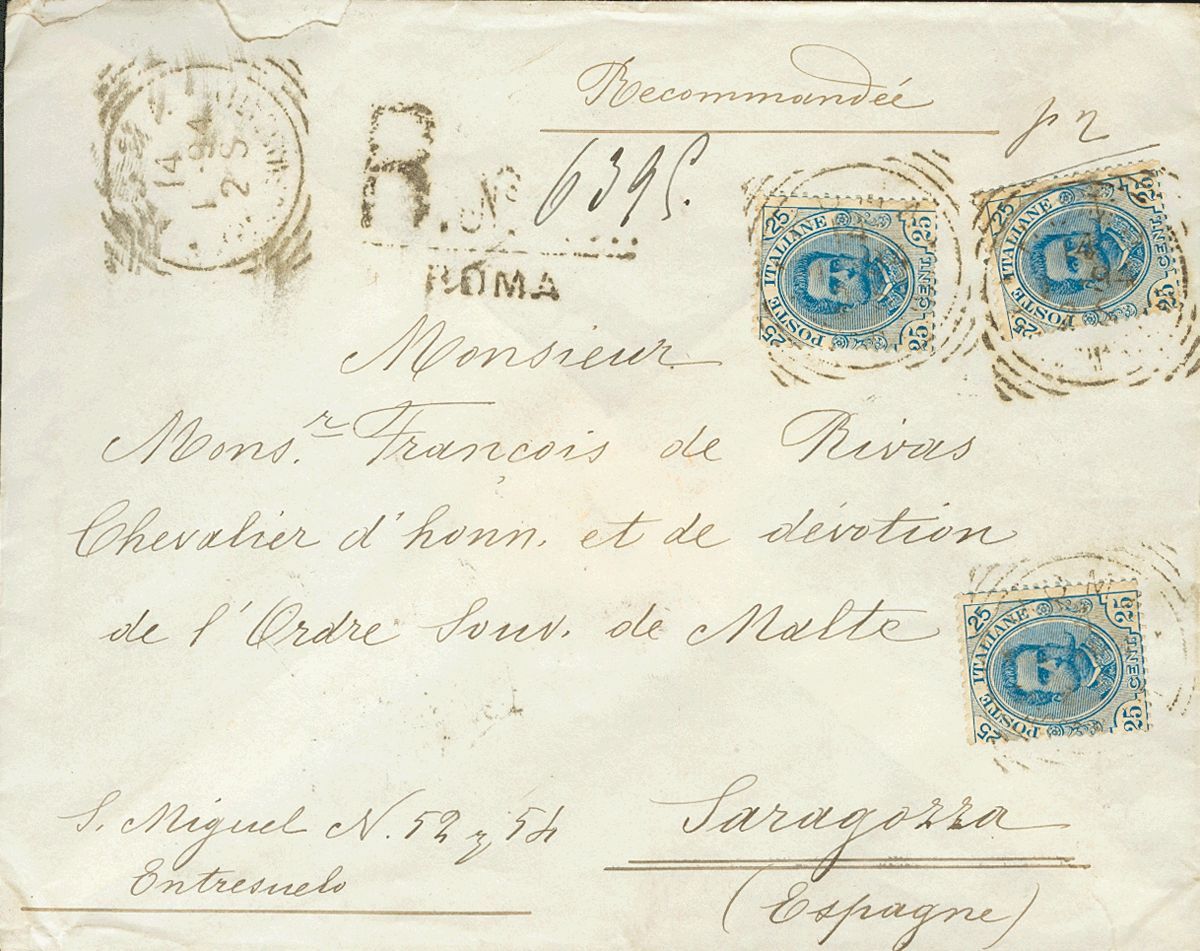 Recommandée
R. No 6395.
ROMA
14
1-94
2 S
25 25
POSTE ITALIANE
CENT.
25 25
25 25
POSTE ITALIANE
CENT.
25 25
Monsieur
Mons.r François de Rivas
Chevalier d'honn. et de dévotion
de l'Ordre Souv. de Malte
25 25
POSTE ITALIANE
CENT.
25 25
S. Miguel N. 52 y 54
Entresuelo
Saragozza
(Espagne)